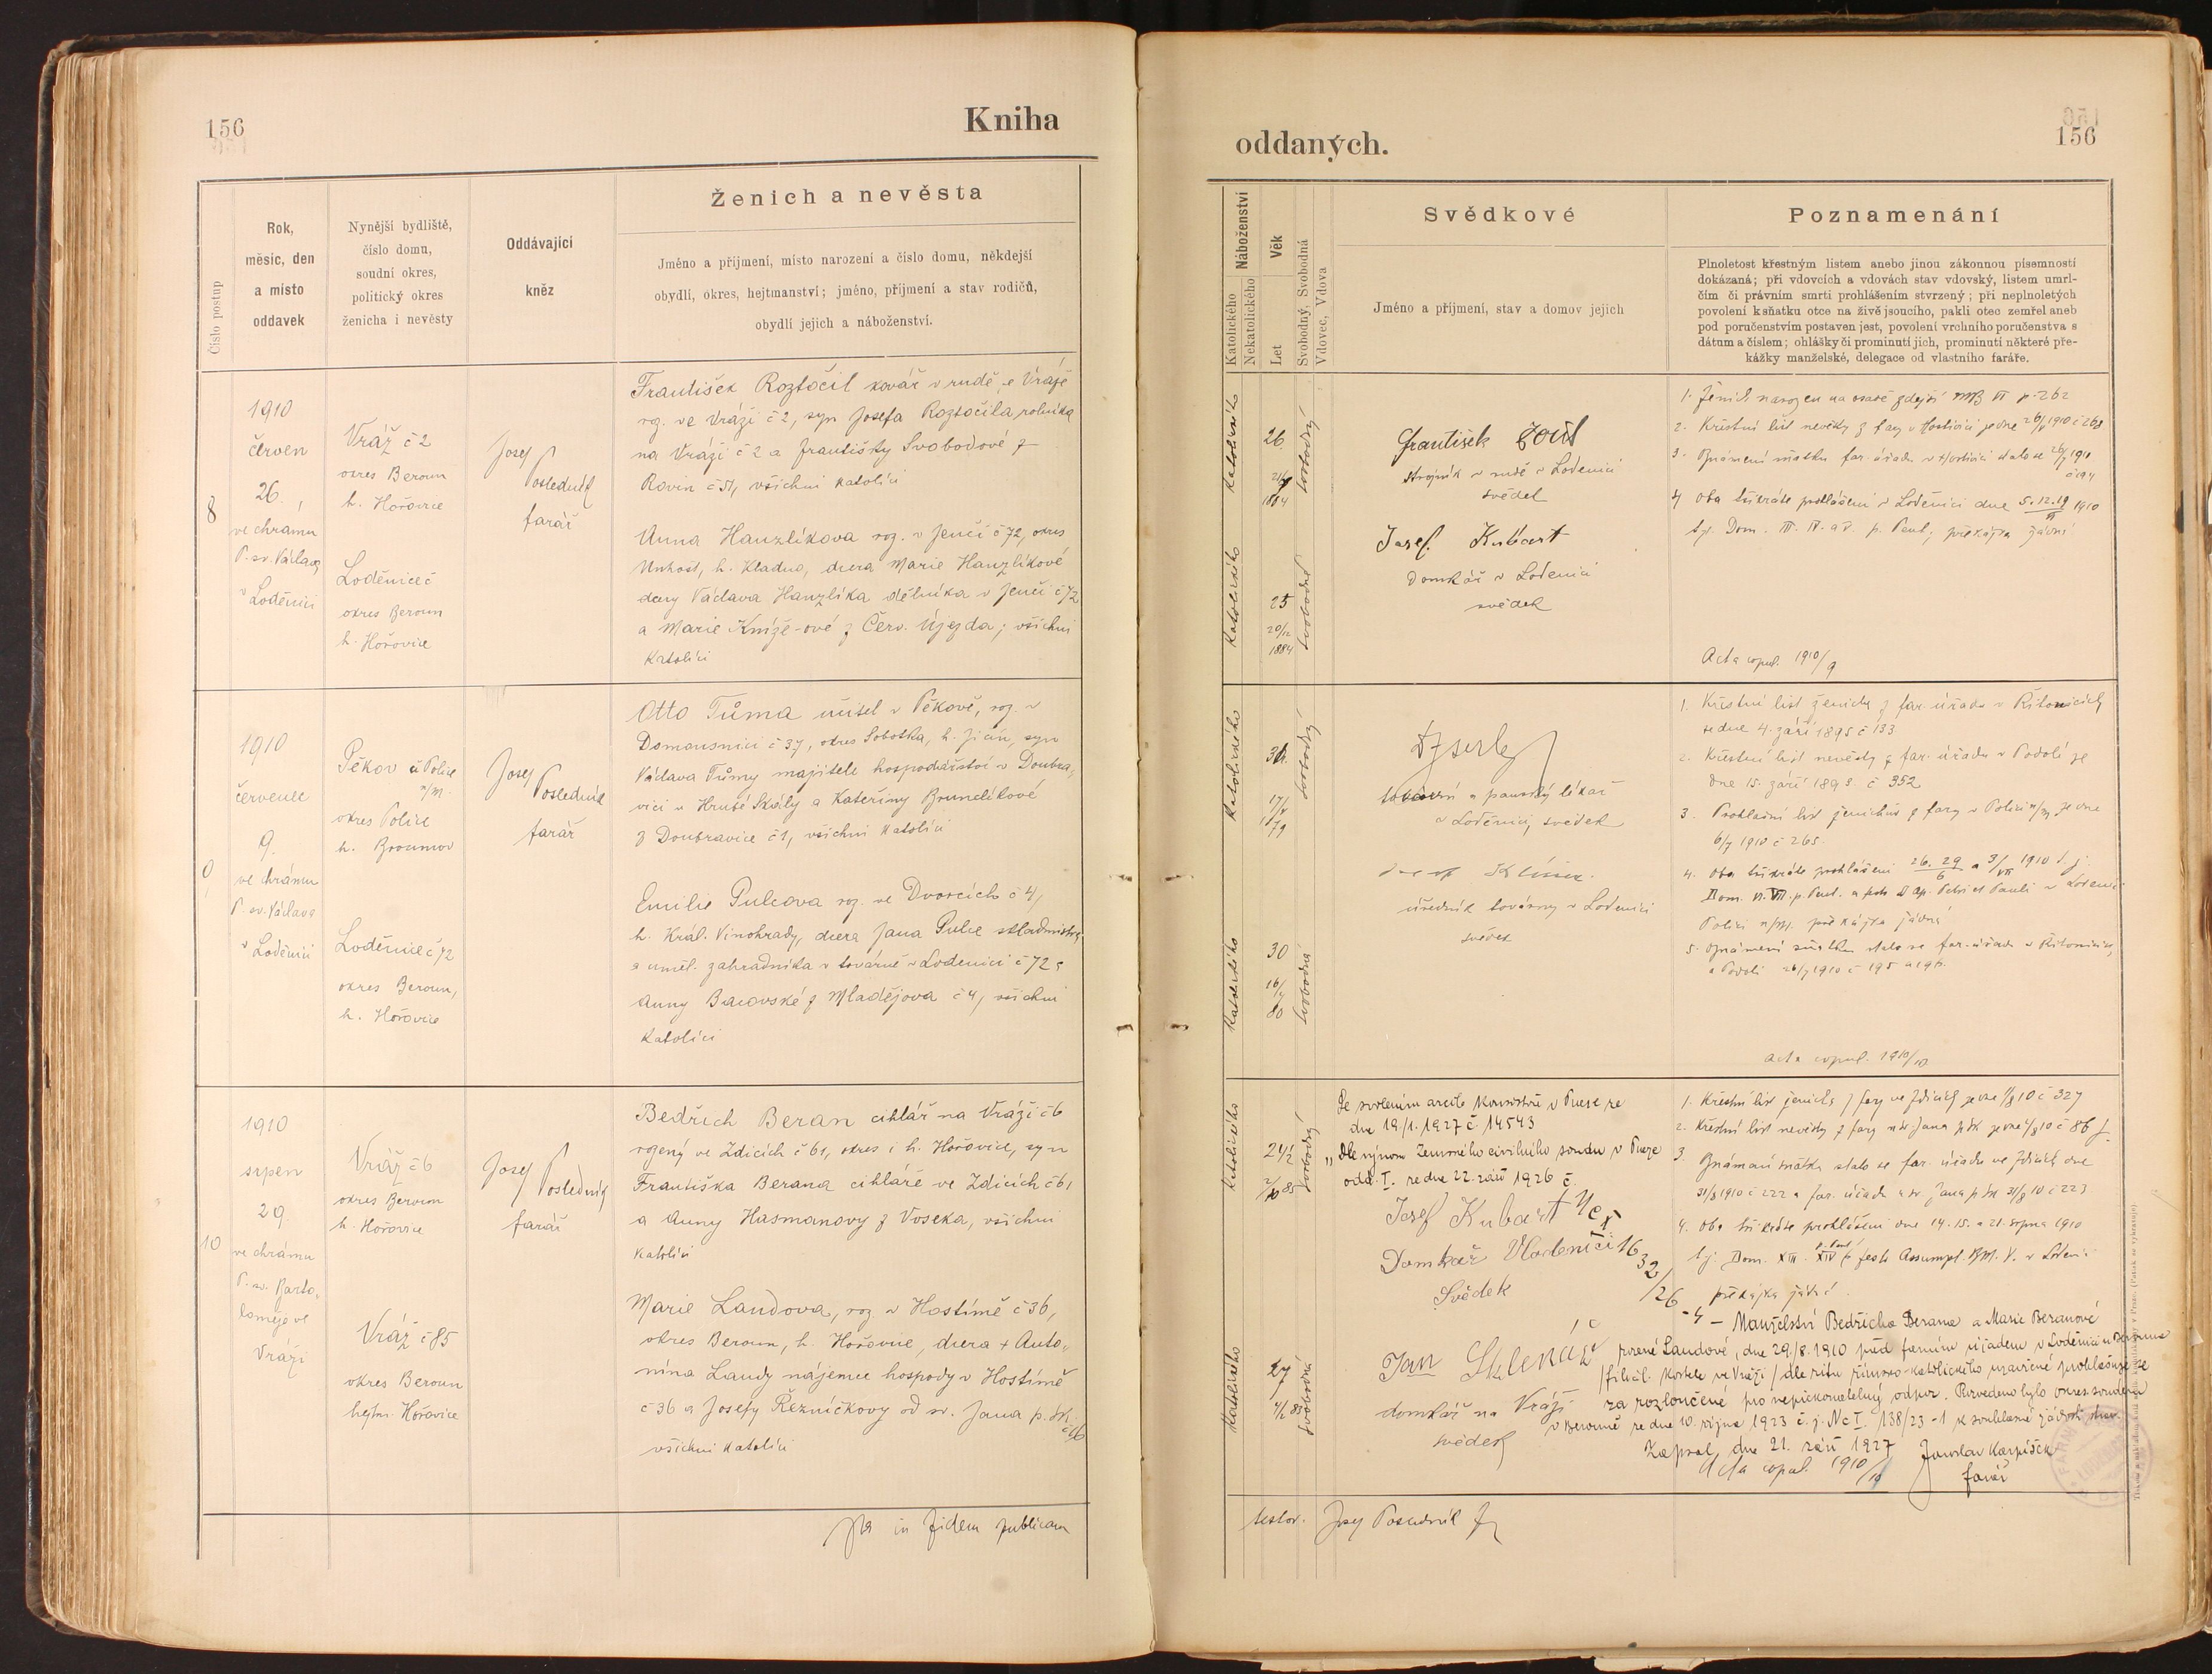 156
Kniha
Ženich a nevěsta
Číslo postup
Rok,
měsíc, den
a místo
oddavek
Nynější bydliště,
číslo domu,
soudní okres,
politický okres
ženicha i nevěsty
Oddávající
kněz
Jméno a příjmení, místo narození a číslo domu, někdejší
obydlí, okres, hejtmanství; jméno, příjmení a stav rodičů,
obydlí jejich a náboženství.
8
1910
červen
26.
ve chrámu
P. sv. Václava
v Loděnici
Vráž č 2
okres Beroun
h. Hořovice
Loděnice č
okres Beroun
h. Hořovice
Josef
Posledník
farář
František Roztočil kovář v rudě, ve Vráži
roz. ve Vráži č 2, syn Josefa Roztočila, rolníka
na Vráži č 2 a Františky Svobodové z
Rovin č 51, všichni katolíci
Anna Hanzlíkova roz. v Jenči č 72, okres
Unhošť, h. Kladno, dcera Marie Hanzlíkové
dcery Václava Hanzlíka dělníka v Jenči č 72
a Marie Kníže-ové z Červ. Újezda; všichni
Katolíci
9
1910
červenec
9.
ve chrámu
P. sv. Václava
v Loděnici
Pěkov u Police
n/M.
okres Police
h. Broumov
Loděnice č 72
okres Beroun,
h. Hořovice
Josef
Posledník
farář
Otto Tůma učitel v Pěkově, roz. v
Domousnici č 37, okres Sobotka, h. Jičín, syn
Václava Tůmy majitele hospodářství v Doubra-
vici u Hrubé Skály a Kateřiny Brundlíkové
z Doubravice č 1, všichni katolíci
Emilie Pulcova roz. ve Dvorcích č 4,
h. Král. Vinohrady, dcera Jana Pulce
a uměl. zahradníka v továrně v Loděnici č 72 a
Anny z Mladějova č 4, všichni
katolíci
10
1910
srpen
29.
ve chrámu
P. sv. Barto-
loměje ve
Vráži
Vráž č 6
okres Beroun
h. Hořovice
Vráž č 85
okres Beroun
hejtm. Hořovice
Josef
Posledník
farář
Bedřich Beran cihlář na Vráži č 6
rozený ve Zdicích č 61, okres i h. Hořovice, syn
Františka Berana cihláře ve Zdicích č 61
a Anny Hasmanovy z Voseka, všichni
katolíci
Marie Landova, roz. v Hostímě č 36,
okres Beroun, h. Hořovice, dcera + Anto-
nína Landy nájemce hospody v Hostímě
č 36 a Josefy Řezníčkovy od sv. Jana p. Sk.
č 16
všichni katolíci
in fidem publicam
156
oddaných.
Náboženství
Katolického
Nekatolického
Věk
Let
Svobodný, Svobodná
Vdovec, Vdova
Svědkové
Jméno a příjmení, stav a domov jejich
Poznamenání
Plnoletost křestným listem anebo jinou zákonnou písemností
dokázaná; při vdovcích a vdovách stav vdovský, listem umrl-
čím či právním smrti prohlášením stvrzený; při neplnoletých
povolení k sňatku otce na živě jsoucího, pakli otec zemřel aneb
pod poručenstvím postaven jest, povolení vrchního poručenstva s
dátum a číslem; ohlášky či prominutí jich, prominutí některé pře-
kážky manželské, delegace od vlastního faráře.
Katolického
26
1884
svobodný
František
strojník v rudě v Loděnici
svědek
Josef Kubart
Domkář v Loděnici
svědek
Katolického
25
20/12
1884
svobodná
1. Ženich narozen na osadě zdejší MB VI p. 262
2. Křestní list nevěsty z fary v Hostivici ze dne 1910 č 268
3. Oznámení sňatku far. úřadu v Hostivici stalo se 1910
4 Oba třikráte prohlášeni v Loděnici dne 5.12.19 1910
VI
t.j. Dom. III. IV. a V. p. Pent.; překážka žádná
Acta copul. 1910/9
Katolického
31
79
svobodný
tovární a panský lékař
v Loděnici, svědek
úředník továrny v Loděnici
svědek
Katolického
30
80
svobodná
1. Křestní list ženicha z far. úřadu v Řitonicích
ze dne 4. září 1895 č 133
2. Křestní list nevěsty z far. úřadu v Podolí ze
dne 15. září 1893 č 352
3. Prohlašní list ženichův z fary v Polici n/M ze dne
6/7 1910 č 265.
4. Oba třikráte prohlášeni 26. 29 a 3/VII 1910 t. j.
6
Dom. VI. VII. p. Pent. a festo SS Ap. Petri et Pauli v Loděnici
Polici n/M. překážka žádná
5. Oznámení sňatku stalo se far. úřadu v Řitonicích,
a Podolí 1910 č 195 a 196.
Acta copul. 1910/10
Katolického
24½
svobodný
Se svolením arcib. konsistoře v Praze ze
dne 19./1. 1927 č. 14543
„Dle výnosu Zemského civilního soudu v Praze
odd. I. ze dne 22. září 1926 č.
Nc I
1632/26
-4 – Manželství Bedřicha Berana a Marie Beranové
Josef Kubart
Domkář v Loděnici
Svědek
Jan Sklenář
domkář na Vráži
svědek
Katolického
27
svobodná
1. Křestní list ženicha z fary ve Zdicích ze dne 10 č 327
2. Křestní list nevěsty z fary u sv. Jana p. Sk. ze dne 10 č 86
3. Oznámení sňatku stalo se far. úřadu ve Zdicích dne
31/8 1910 č 222 a far. úřadu u sv Jana p. Sk 31/8 10 č 223
4. Oba třikráte prohlášeni dne 14. 15. a 21. srpna 1910
t.j. Dom. XIII. XIV p. Pent. festo Assumpt. B.M. V. v Loděnici
překážka žádná.
rozené Landové, dne 29./8. 1910 před farním úřadem v Loděnici u Berouna
/filiál. kostele ve Vráži/ dle ritu římsko-katolického uzavřené prohlašuje se
za rozloučené pro nepřekonatelný odpor. Povoleno bylo okres. soudem
v Berouně ze dne 10. října 1923 č. j. Nc I. 138/23-1 k souhlasné žádosti stran.
Zapsal, dne 21. září 1927 Jaroslav Karpíšek
farář
Acta copul. 1910/11
testor. Josef Posledník